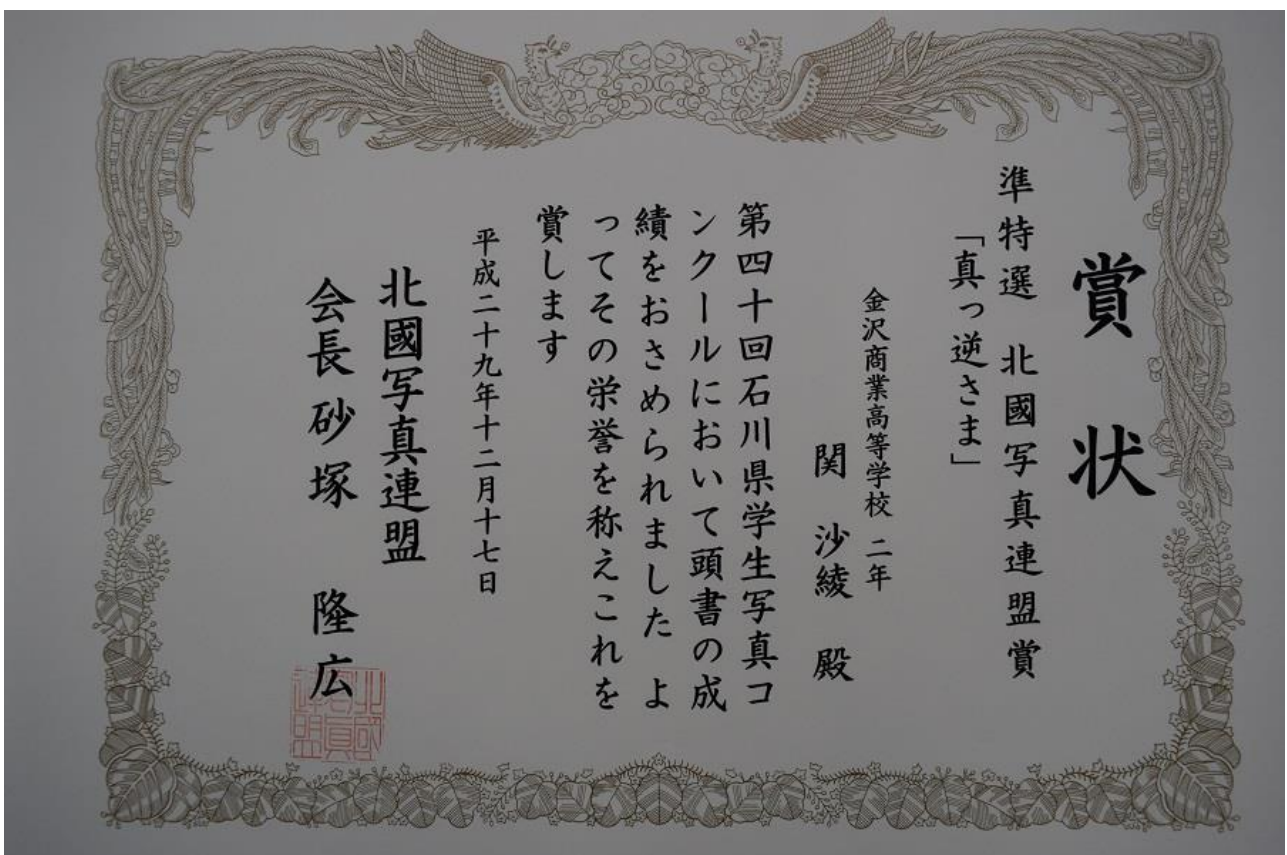 賞状
準特選 北國写真連盟賞
「真っ逆さま」
金沢商業高等学校 二年
関 沙綾 殿
第四十回石川県学生写真コ
ンクールにおいて頭書の成
績をおさめられました よ
ってその栄誉を称えこれを
賞します
平成二十九年十二月十七日
北國写真連盟
会長 砂塚 隆広
北國
写真
連盟